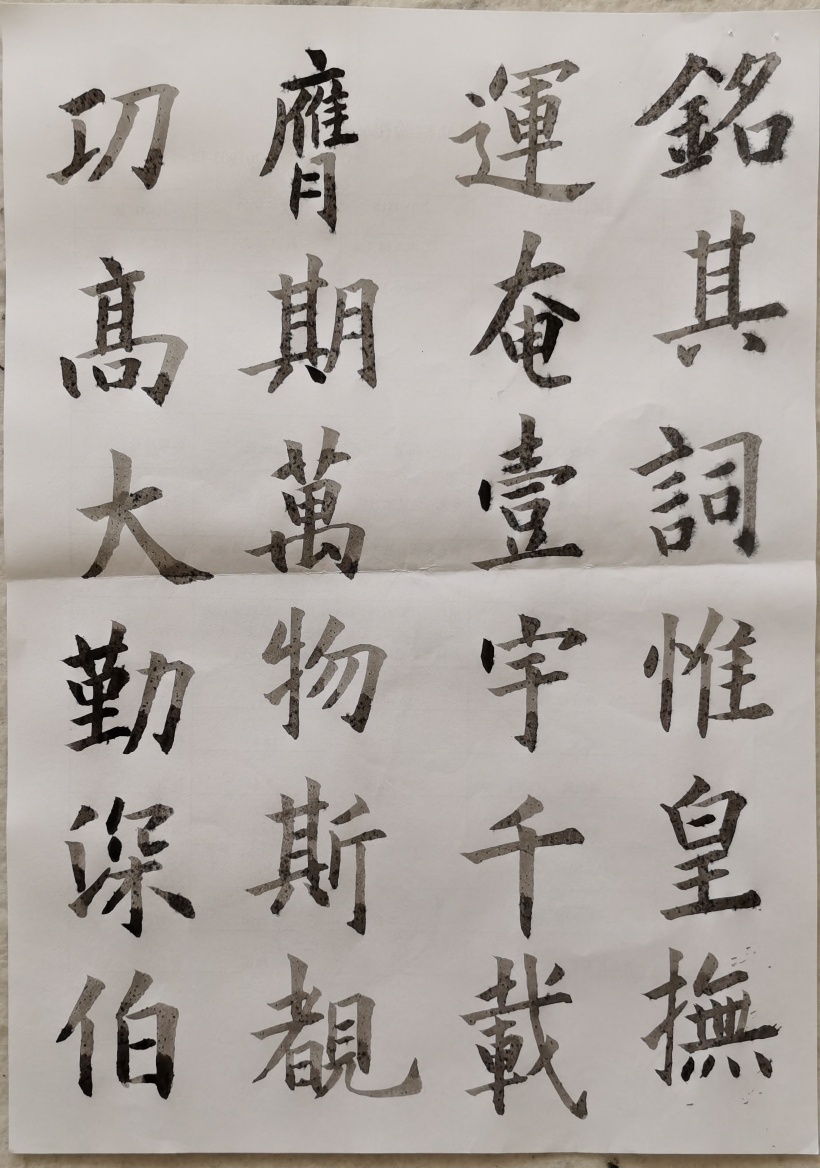 銘其詞惟皇撫
運奄壹宇千載
膺期萬物斯覩
功高大勤深伯